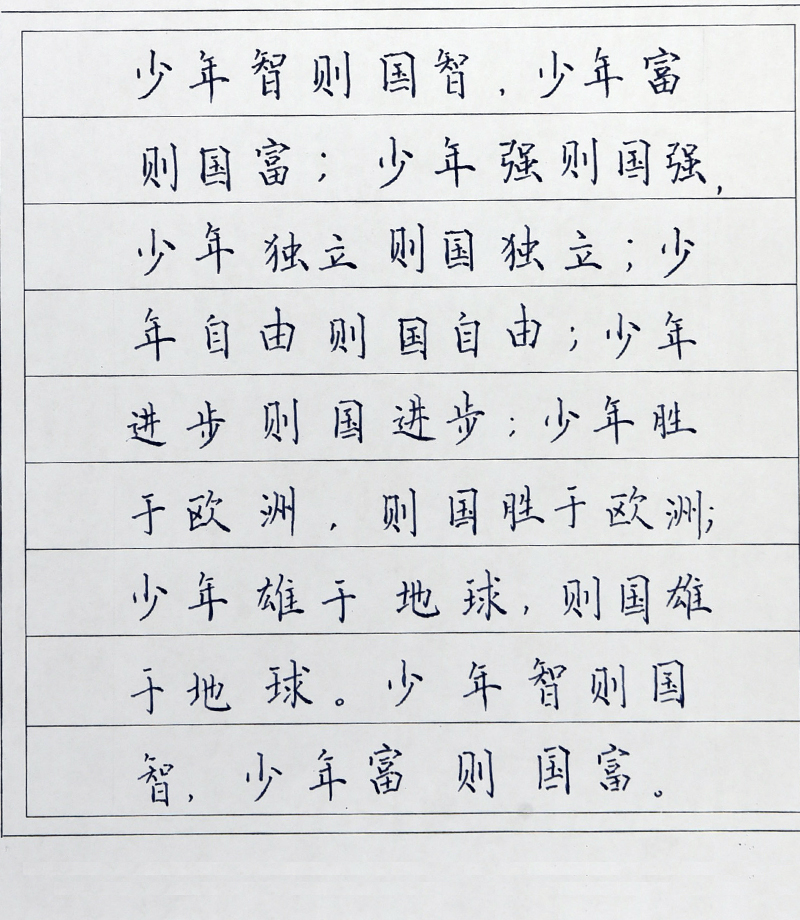 少年智则国智，少年富
则国富；少年强则国强，
少年独立则国独立；少
年自由则国自由；少年
进步则国进步；少年胜
于欧洲，则国胜于欧洲；
少年雄于地球，则国雄
于地球。少年智则国
智，少年富则国富。